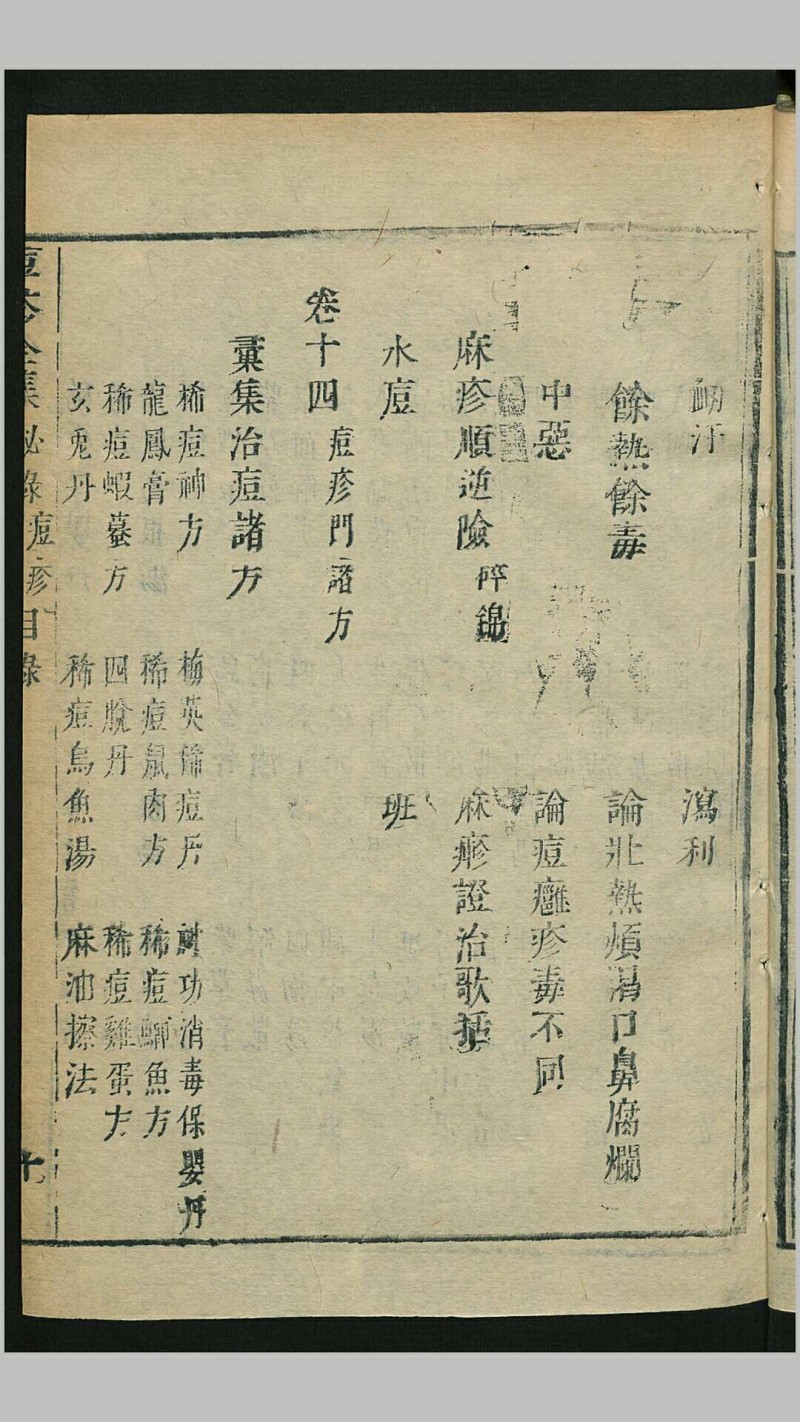 衂汗　瀉利
餘熱餘毒　論壯熱煩渴口鼻腐爛
中惡　論痘癰疹毒不同
麻疹順逆險　碎錦　麻疹證治歌括
水痘　班
卷十四　痘疹門諸方
彙集治痘諸方
稀痘神方　梅英稀痘丹　神功消毒保嬰丹
龍鳳膏　稀痘鼠肉方　稀痘鯽魚方
稀痘蝦蟇方　四脫丹　稀痘雞蛋方
玄兎丹　稀痘烏魚湯　麻油擦法
痘疹全集祕錄　痘疹目錄